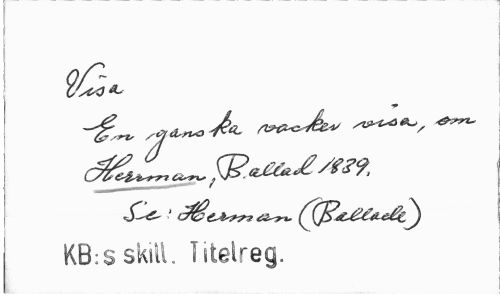 Visa
En ganska vacker visa, om
Herrman, Ballad 1839.
Se: Herman (Ballade)
KB:s skill. Titelreg.